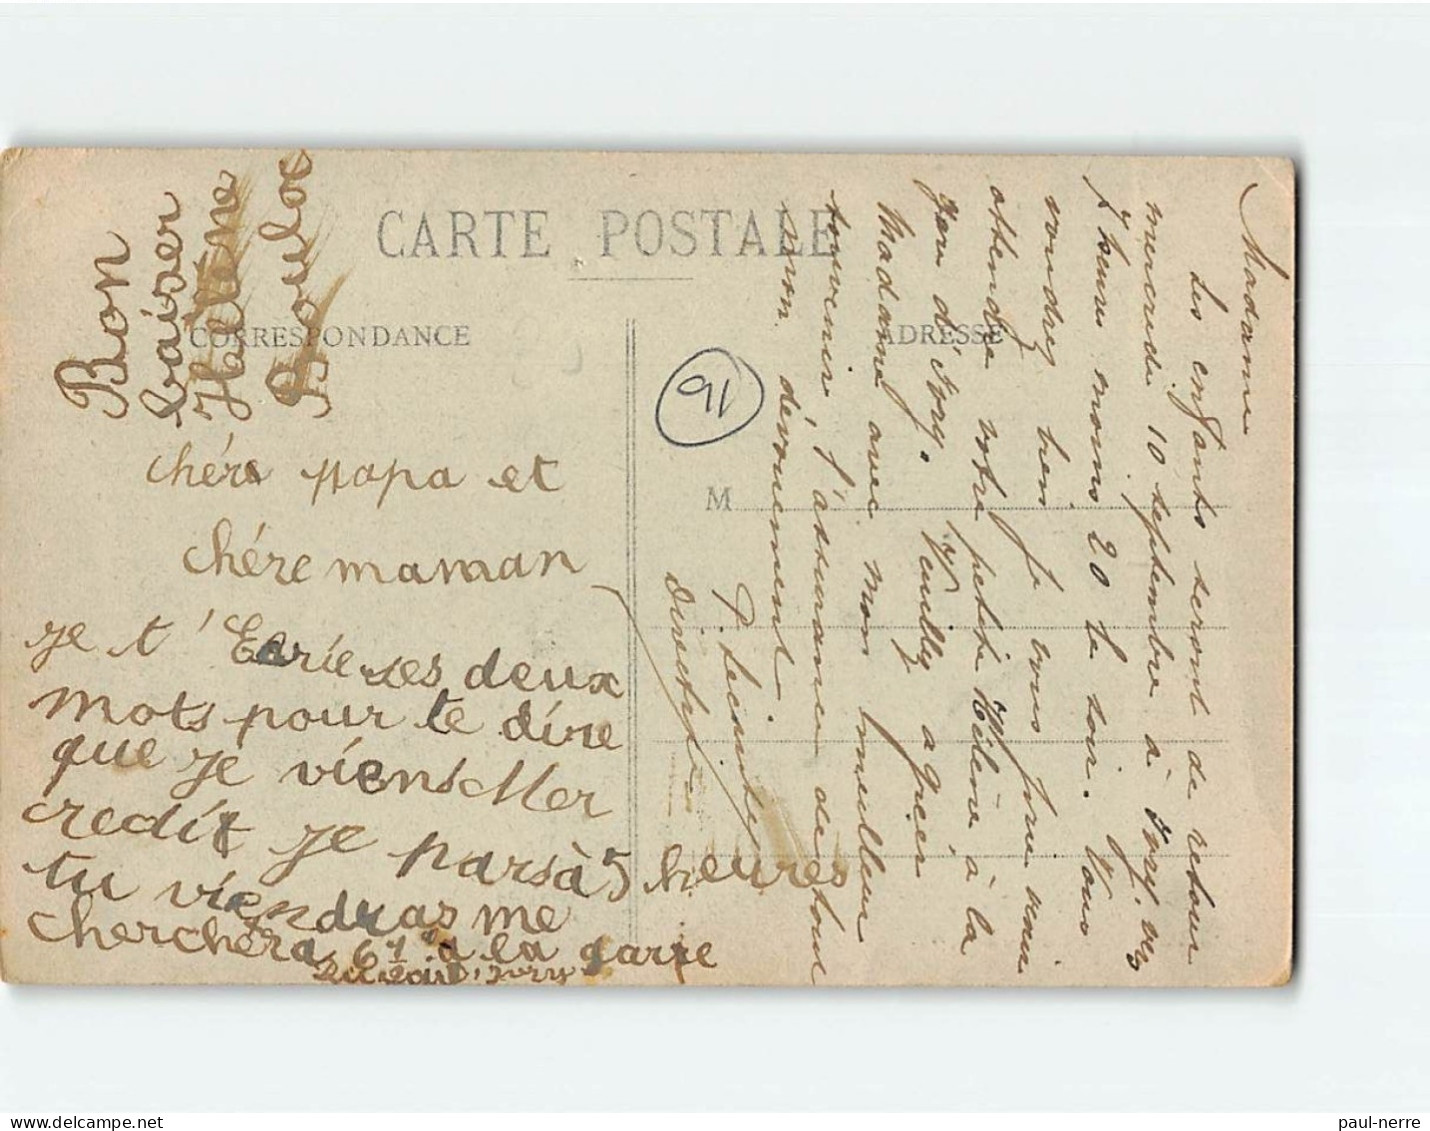 CARTE POSTALE
CORRESPONDANCE
ADRESSE
M
91
chére papa et
chére maman
je t' Ecrie ses deux
mots pour te dire
que je viens Mer
credit je pars à 5 heures
tu viendras me
cherchera 6 1 à la garre
Bon
baiser
Hélène
Boulos
Madame
Les enfants seront de retour
mercredi 10 septembre à Ivry, vers
7 heures moins 20 le soir. Vous
voudrez bien je vous prie venir
attendre votre petite Hélène à la
gare d'Ivry. Veuillez agréer
Madame avec mon meilleur
souvenir, l'assurance de tout
mon dévouement.
directrice
paul-nerre